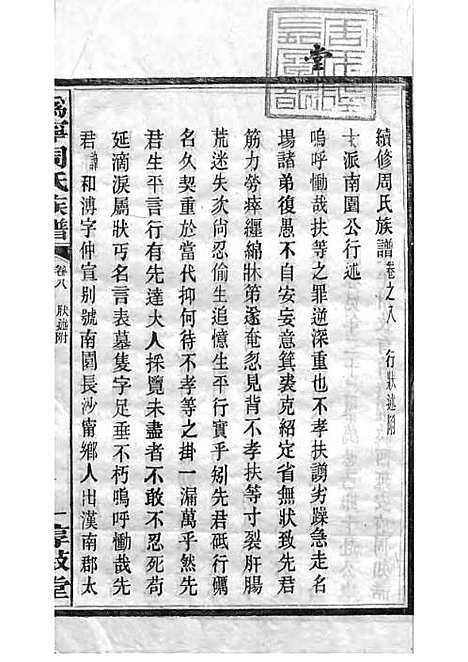 續修周氏族譜卷之八 行狀述附
十派南園公行述
嗚呼慟哉扶等之罪逆深重也不孝扶謭劣躁急走名
場諸弟復愚不自安妄意箕裘克紹定省無狀致先君
筋力勞瘁纏綿牀第遂奄忽見背不孝扶等寸裂肝腸
荒迷失次尚忍偷生追憶生平行實乎矧先君砥行礪
名久契重於當代抑何待不孝等之掛一漏萬乎然先
君生平言行有先達大人採覽未盡者不敢不忍死苟
延滴淚屬狀丐名言表墓隻字足垂不朽嗚呼慟哉先
君諱和溥字仲宣别號南園長沙甯鄉人出漢南郡太
溈寧周氏族譜
卷八 狀述附
一
堂